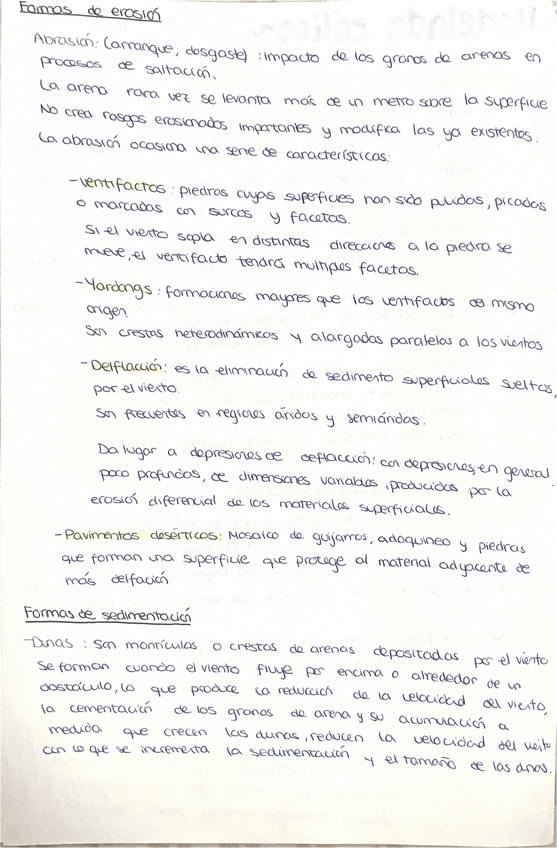 Formas de erosión
Abrasión: (arranque, desgaste) : impacto de los granos de arenas en
procesos de saltación.
La arena rara vez se levanta más de un metro sobre la superficie
No crea rasgos erosionados importantes y modifica las ya existentes.
La abrasión ocasiona una serie de características:
-Ventifactos: piedras cuyas superficies han sido pulidas, picadas
o marcadas con surcos y facetas.
Si el viento sopla en distintas direcciones a la piedra se
mueve, el ventifacto tendrá multiples facetas.
-Yardangs: formaciones mayores que los ventifactos del mismo
origen.
Son crestas heterodinámicos y alargadas paralelas a los vientos
-Delflacción: es la eliminación de sedimento superficiales sueltos,
por el viento.
Son frecuentes en regiones áridos y semiáridas.
Da lugar a depresiones de deflacción: con depresiones, en general
poco profundos, de dimensiones variables, producidas por la
erosión diferencial de los materiales superficiales.
-Pavimentos desérticos: Mosaico de guijarros, adoquineo y piedras
que forman una superficie que protege al material adyacente de
más delfación
Formas de sedimentación
-Dunas: Son montículos o crestas de arenas depositadas por el viento
Se forman cuando el viento fluye por encima o alrededor de un
obstáculo, lo que produce la reducción de la velocidad del viento,
la cementación de los granos de arena y su acumulación a
medida que crecen las dunas, reducen la velocidad del
con lo que se incrementa la sedimentación y el tamaño de las dunas.